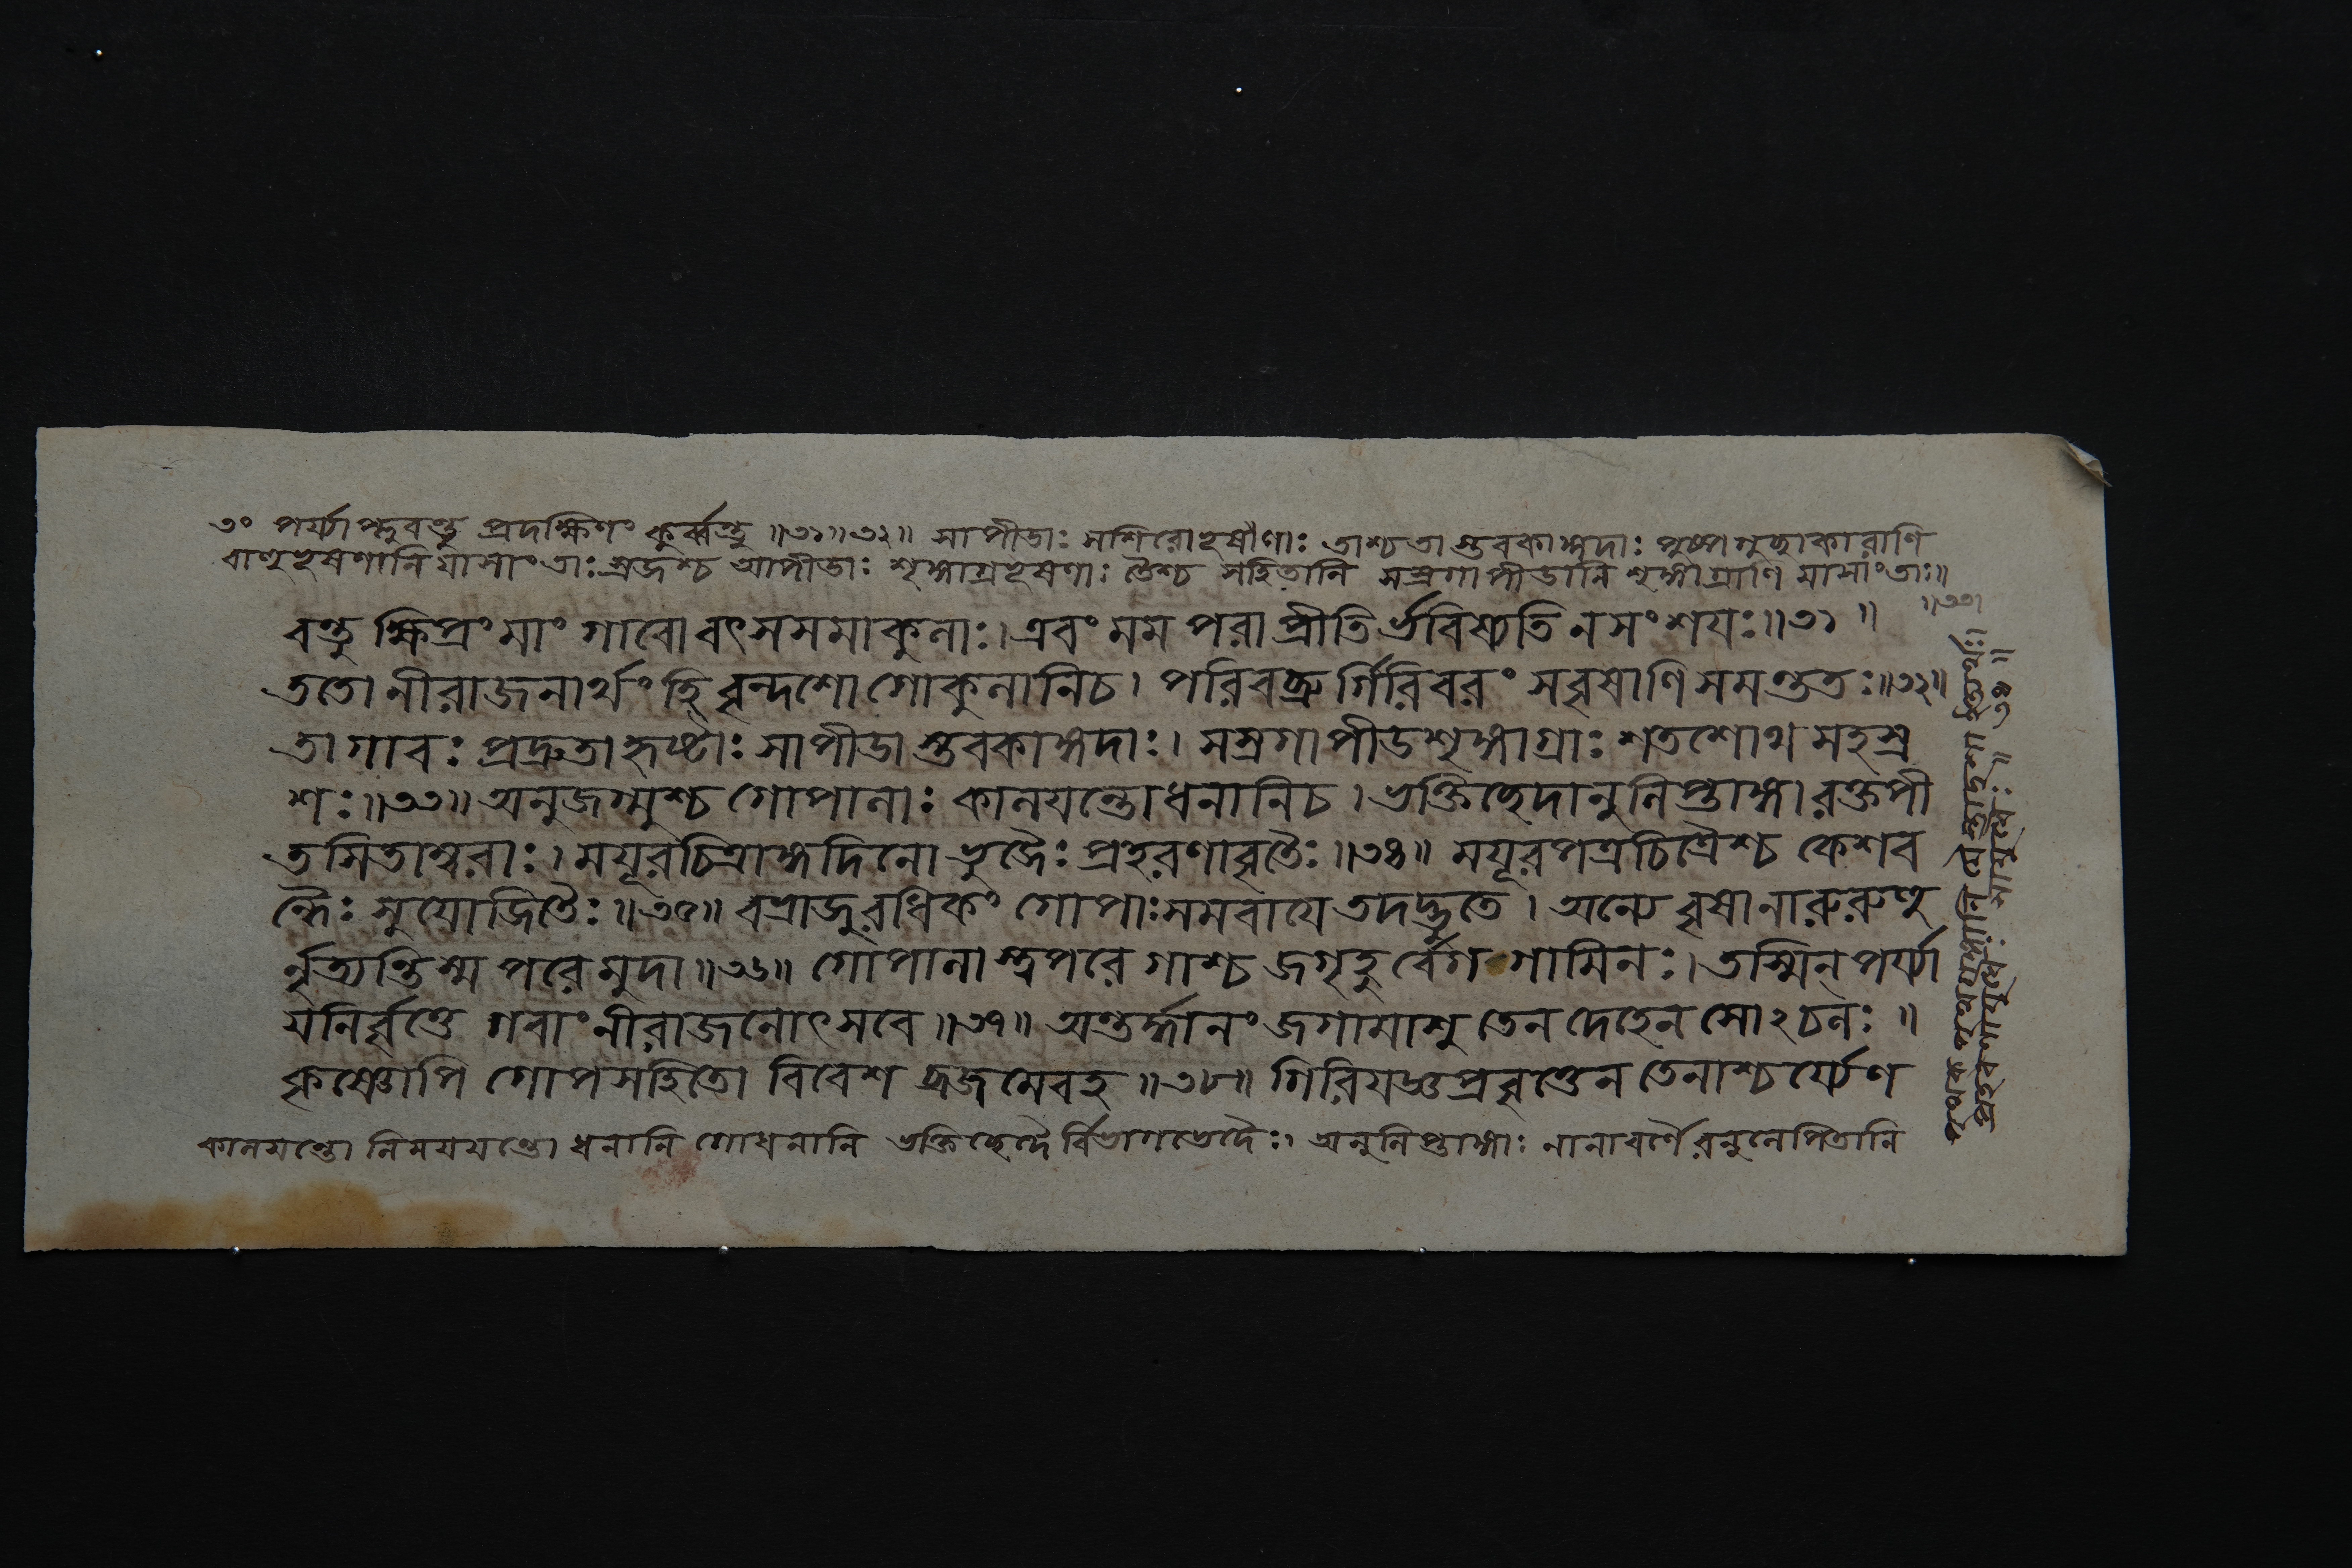 ৩ং পর্য্যাপ্লুবন্তু প্রদক্ষিণং কুর্ব্বন্তু ॥৩১॥৩২॥ সাপীডাঃ সশিরোভূষণাঃ তাশ্চতা স্তবকাঙ্গদাঃ পুষ্পমুক্তাকারাণি
বাহুভূষণানি যাসাং তাঃ স্রজশ্চ আপীডাঃ শৃঙ্গাগ্রভূষণাঃ তৈশ্চ সহিতানি সস্রগাপীডানি শৃঙ্গাগ্রাণি যাসাং তাঃ॥
॥৩৩।
বন্তু ক্ষিপ্রং মাং গাবো বৎসসমাকুলাঃ। এবং মম পরা প্রীতির্ভবিষ্যতি ন সংশয়ঃ॥৩১॥
ততো নীরাজনার্থং হি বৃন্দশো গোকুলানি চ। পরিবব্রুর্গিরিবরং সবৃষাণি সমন্ততঃ॥৩২॥
তা গাবঃ প্রদ্রুতা হৃষ্টাঃ সাপীডা স্তবকাঙ্গদাঃ। সস্রগাপীডশৃঙ্গাগ্রাঃ শতশোথ সহস্র
শঃ॥৩৩॥ অনুজগ্মুশ্চ গোপালাঃ কালযন্তো ধনানি চ। ভক্তিচ্ছেদানুলিপ্তাঙ্গা রক্তপী
তসিতাম্বরাঃ। ময়ূরচিত্রাঙ্গদিনো ভুজৈঃ প্রহরণাবৃতৈঃ॥৩৪॥ ময়ূরপত্রচিত্রৈশ্চ কেশব
ন্ধৈঃ সুযোজিতৈঃ॥৩৫॥ বভ্রাজুরধিকং গোপাঃ সমবাযে তদদ্ভুতে। অন্যে বৃষানারুরুহু
র্নৃত্যন্তিস্ম পরে মুদা॥৩৬॥ গোপালাস্ত্বপরে গাশ্চ জগৃহুর্বেগগামিনঃ। তস্মিন্ পর্য্যা
যনির্বৃত্তে গবাং নীরাজনোৎসবে॥৩৭॥ অন্তর্দ্ধানং জগামাশু তেন দেহেন সোঽচলঃ॥
কৃষ্ণোপি গোপসহিতো বিবেশ ব্রজমেবহ॥৩৮॥ গিরিযজ্ঞপ্রবৃত্তেন তেনাশ্চর্য্যেণ
কালযন্তো নিময়যন্তো ধনানি গোধনানি ভক্তিচ্ছেদৈর্বিভাগভেদৈঃ। অনুলিপ্তাঙ্গাঃ নানাবর্ণৈরনুলেপিতানি
প্রহরণাযুধৈঃ ॥ ৩৪॥